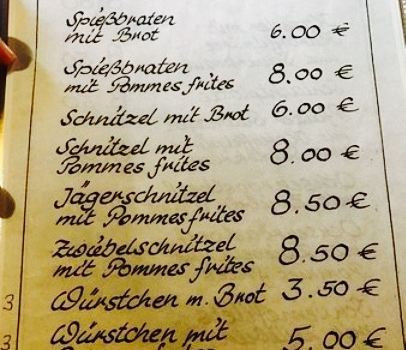 Spießbraten
mit Brot 6.00 €
Spießbraten
mit Pommes frites 8.00 €
Schnitzel mit Brot 6.00 €
Schnitzel mit
Pommes frites 8.00 €
Jägerschnitzel
mit Pommes frites 8.50 €
Zwiebelschnitzel
mit Pommes frites 8.50 €
3 Würstchen m. Brot 3.50 €
3 Würstchen mit 5.00 €